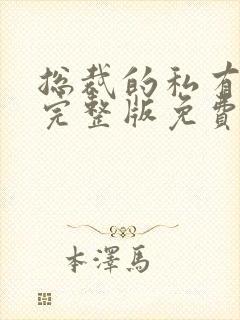 总裁的私有
完整版免費
本澤馬